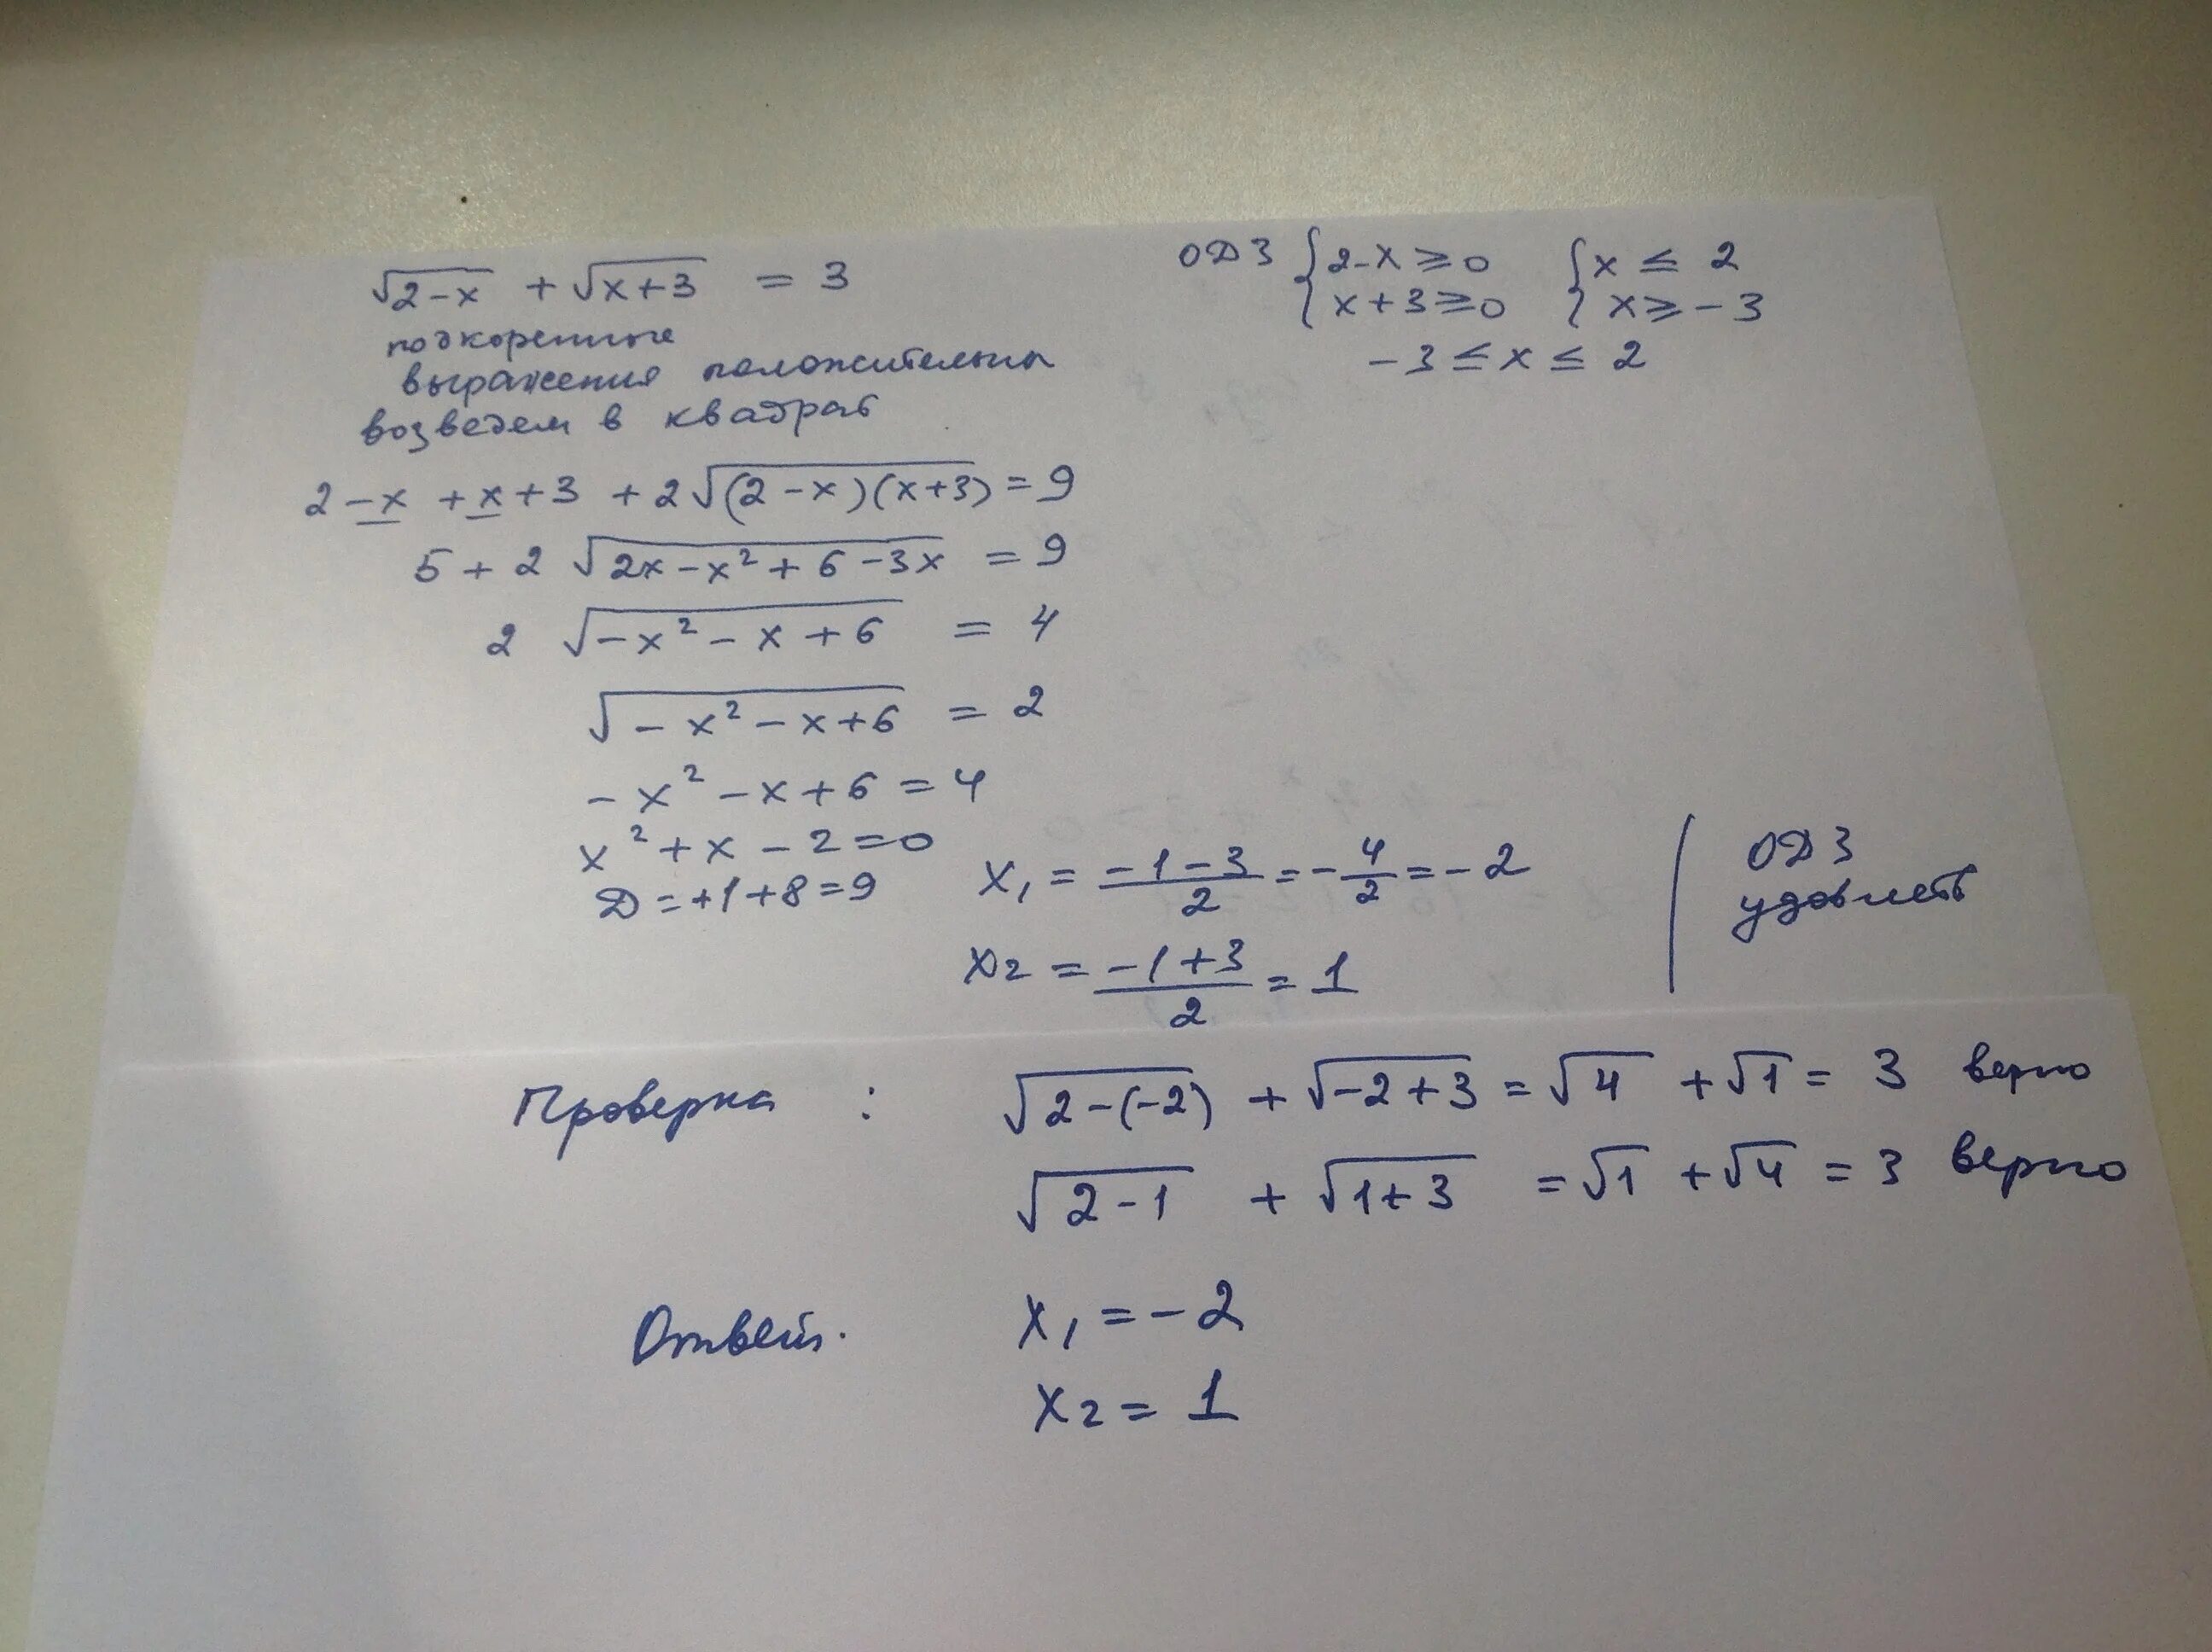 √2-x + √x+3 = 3
ОДЗ {2-x ≥ 0 {x ≤ 2
x+3 ≥ 0 x ≥ -3
-3 ≤ x ≤ 2
подкоренные
выражения положительны
возведем в квадрат
2 - x + x + 3 + 2√(2-x)(x+3) = 9
5 + 2 √2x - x² + 6 - 3x = 9
2 √-x² - x + 6 = 4
√-x² - x + 6 = 2
-x² - x + 6 = 4
x² + x - 2 = 0
D = +1 + 8 = 9
x₁ = (-1-3)/2 = -4/2 = -2
x₂ = (-1+3)/2 = 1
ОДЗ
удовлет
Проверка : √2-(-2) + √-2+3 = √4 + √1 = 3 верно
√2-1 + √1+3 = √1 + √4 = 3 верно
Ответ. x₁ = -2
x₂ = 1